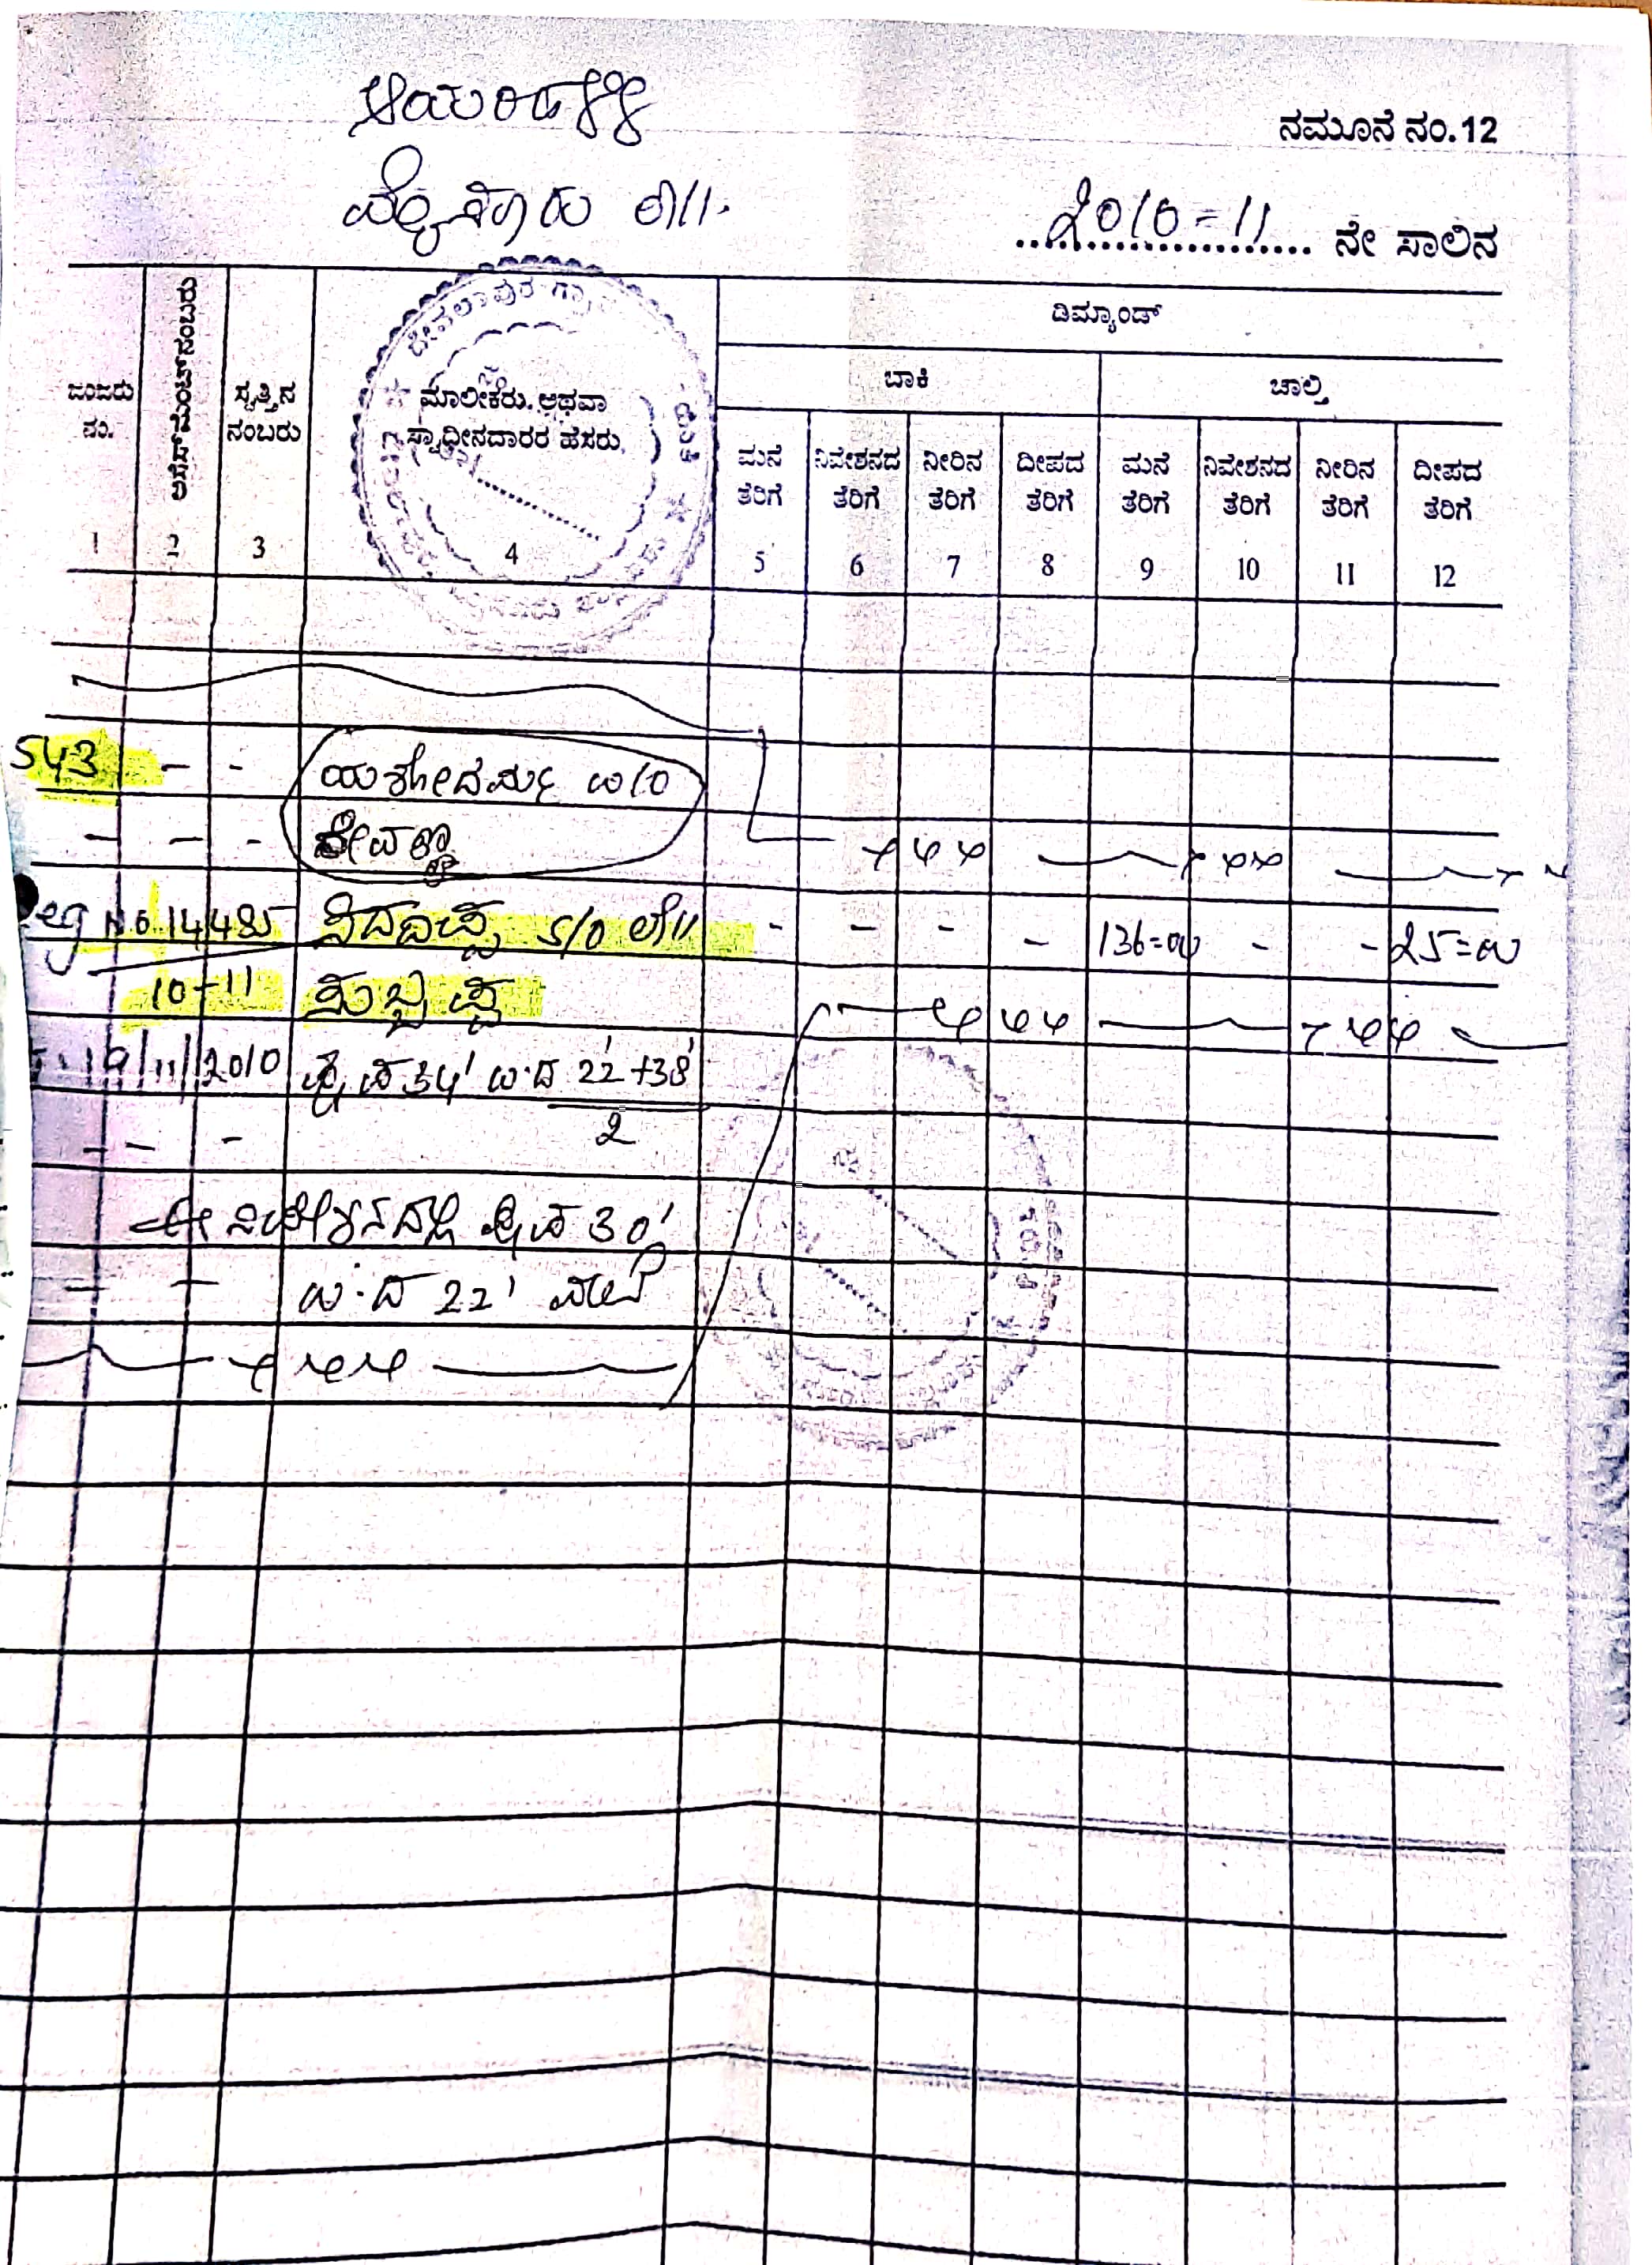 ನಮೂನೆ ನಂ.12
ಮೈಸೂರು ತಾ||.
2010=11 ನೇ ಸಾಲಿನ
ಡಿಮ್ಯಾಂಡ್
ಬಾಕಿ ಚಾಲ್ತಿ
ಜಂಜರು ನಂ. ಅಸೆಸ್‌ಮೆಂಟ್ ನಂಬರು ಸ್ವತ್ತಿನ ನಂಬರು ಮಾಲೀಕರು. ಅಥವಾ
ಸ್ವಾಧೀನದಾರರ ಹೆಸರು.
ಮನೆ ನಿವೇಶನದ ನೀರಿನ ದೀಪದ ಮನೆ ನಿವೇಶನದ ನೀರಿನ ದೀಪದ
ತೆರಿಗೆ ತೆರಿಗೆ ತೆರಿಗೆ ತೆರಿಗೆ ತೆರಿಗೆ ತೆರಿಗೆ ತೆರಿಗೆ ತೆರಿಗೆ
1 2 3 4 5 6 7 8 9 10 11 12
543 - - ಯಶೋದಮ್ಮ �w/o
- - - ದೇವಣ್ಣ
eg No 14485 ಸಿದ್ದಪ್ಪ S/O ಲೇ|| - - - - 136=00 - - 25=00
10-11 ಸುಬ್ಬಪ್ಪ
19/11/2010 ಪೂ ಪ 34' ಉ.ದ 22'+38'
- - - 2
ಈ ನಿವೇಶನದಲ್ಲಿ ಪೂ ಪ 30'
- - ಉ.ದ 22' ಮನೆ